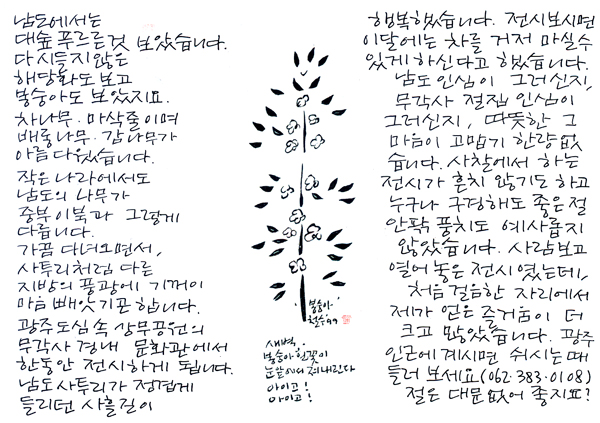 남도에서는
대숲 푸르른 것 보았습니다.
다 시들지 않은
해당화도 보고
봉숭아도 보았지요.
차나무·마삭줄이며
배롱나무·감나무가
아름다웠습니다.
작은 나라에서도
남도의 나무가
중부 이북과 그렇게
다릅니다.
가끔 다녀오면서,
사투리처럼 다른
지방의 풍광에 기꺼이
마음 빼앗기곤 합니다.
광주 도심 속 상무공원의
무각사 경내 문화관에서
한동안 전시하게 됩니다.
남도 사투리가 정겹게
들리던 사흘길이
봉숭아·
철수 99
새벽,
봉숭아 흰꽃이
눈앞에서 져내린다
아이고!
아이고!
행복했습니다. 전시보시면
이달에는 차를 거저 마실수
있게 하신다고 했습니다.
남도 인심이 그러신지,
무각사 절집 인심이
그러신지, 따뜻한 그
마음이 고맙기 한량없
습니다. 사찰에서 하는
전시가 흔치 않기도 하고
누구나 구경해도 좋은 절
안팎 풍치도 예사롭지
않았습니다. 사람보고
열어놓은 전시였는데,
처음 걸음한 자리에서
제가 얻은 즐거움이 더
크고 많았습니다. 광주
인근에 계시면 쉬시는 때
들러 보세요(062·383·0108)
절은 대문없어 좋지요?